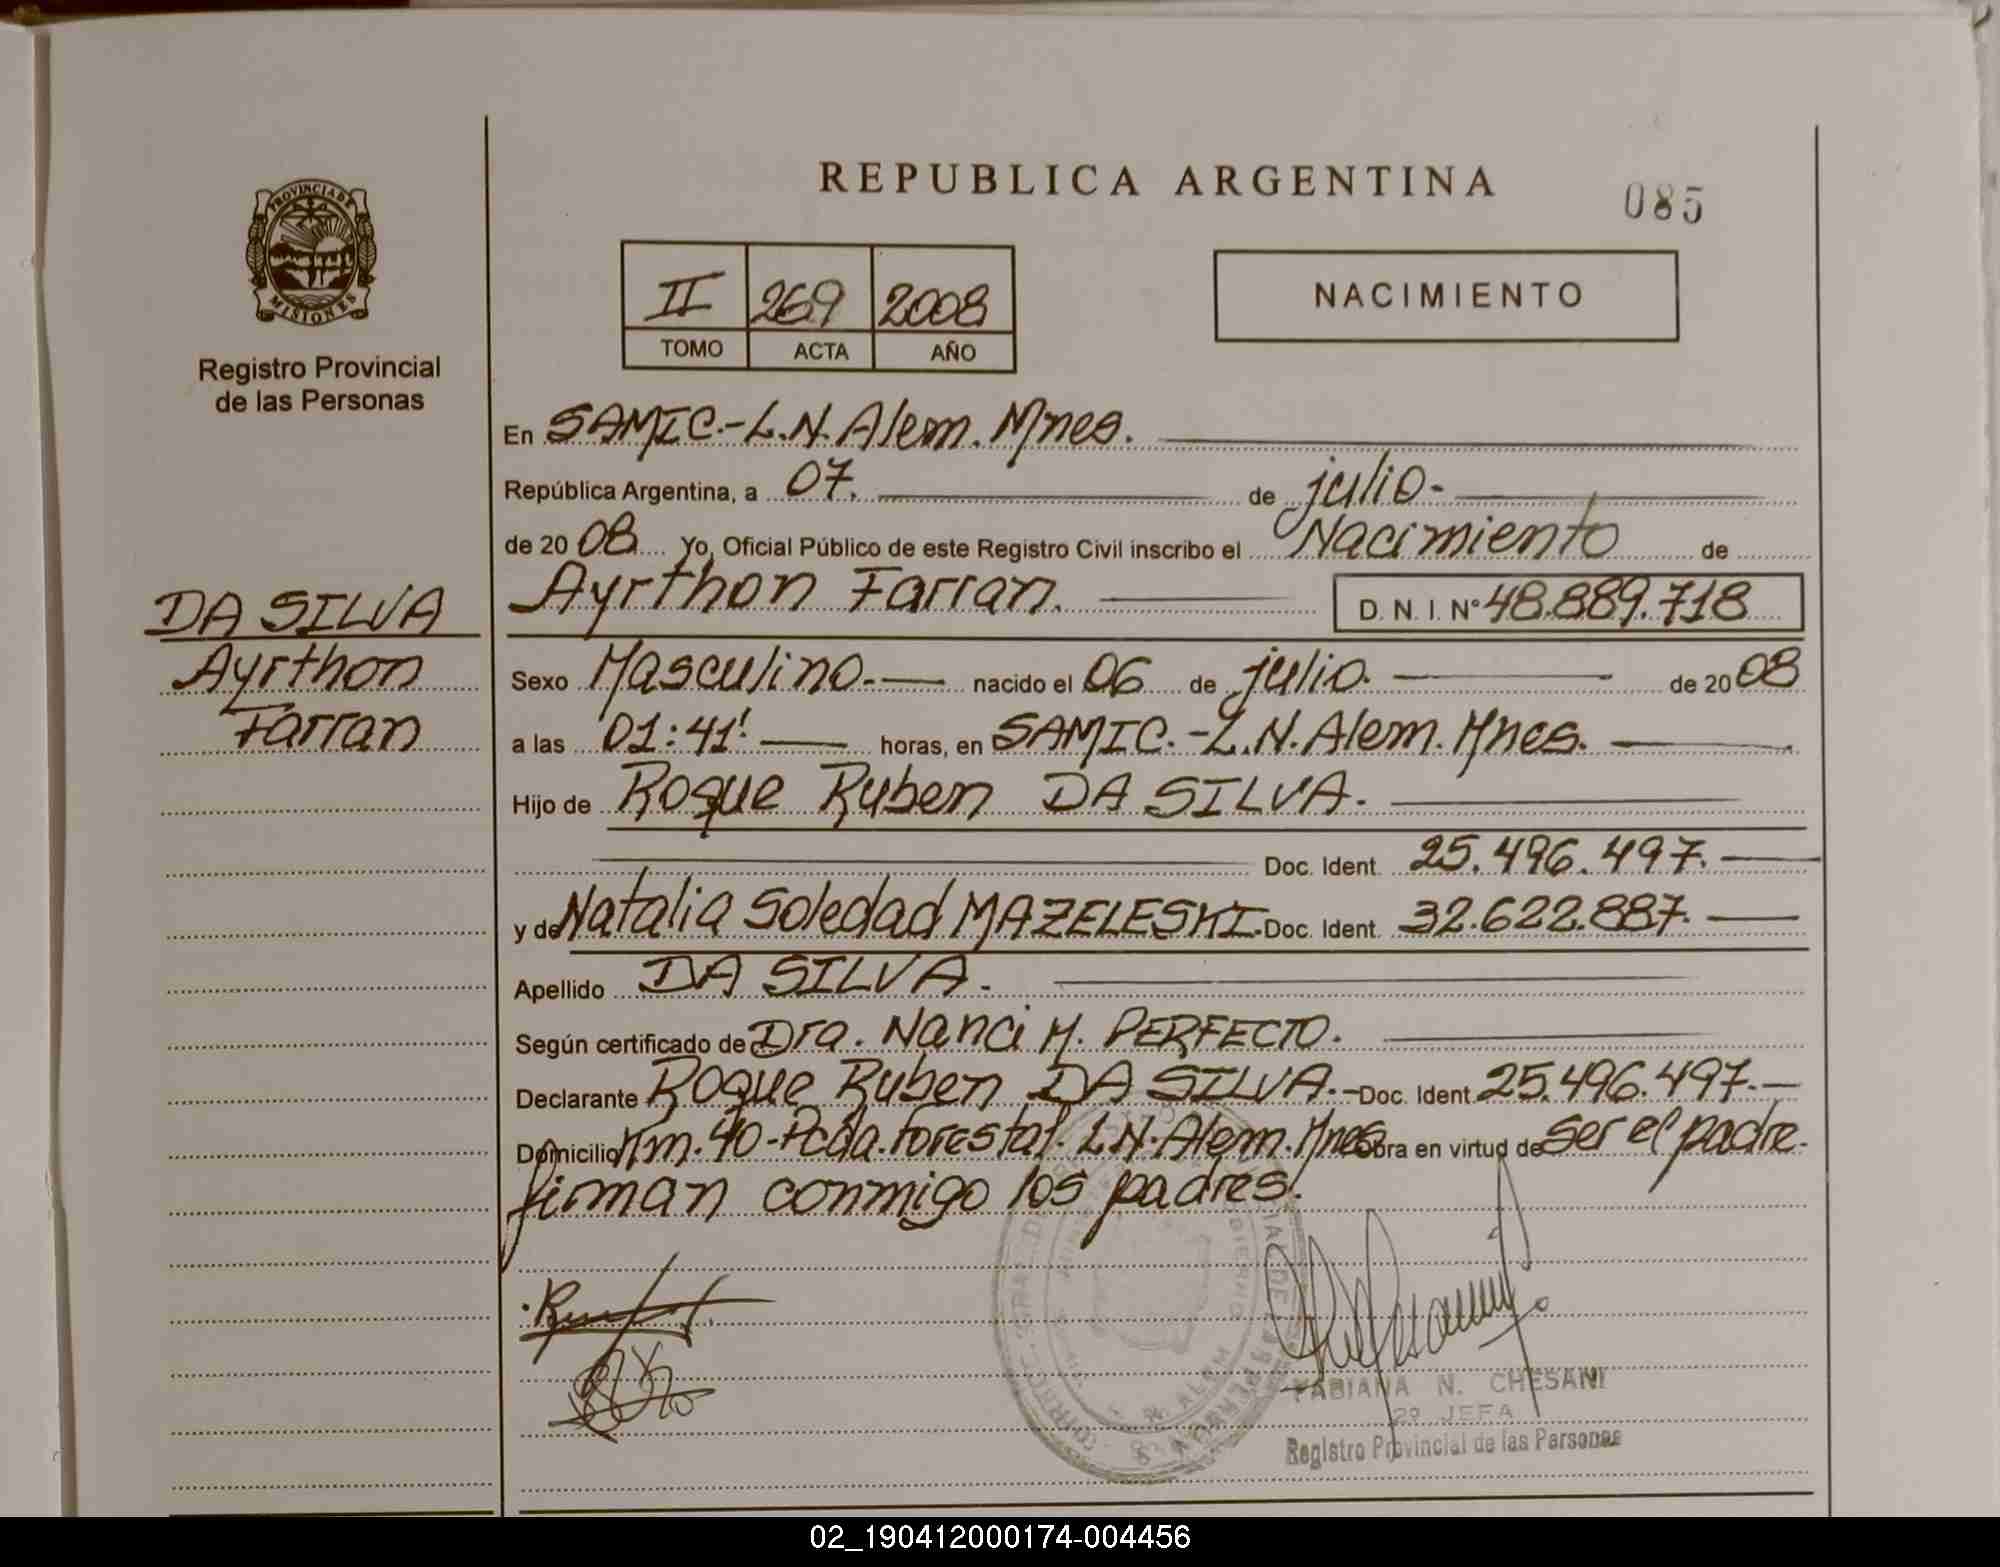 REPUBLICA ARGENTINA
085
PROVINCIA DE
MISIONES
Registro Provincial
de las Personas
II 269 2008
TOMO ACTA AÑO
NACIMIENTO
En SAMIC.-L.N. Alem. Mnes.
República Argentina, a 07. de julio-
de 2008 Yo, Oficial Público de este Registro Civil inscribo el Nacimiento de
Ayrthon Farran. D. N. I. Nº 48.889.718
DA SILVA
Ayrthon
Farran
Sexo Masculino.- nacido el 06 de julio. de 2008
a las 01:41' horas, en SAMIC.-L.N. Alem. Mnes.
Hijo de Roque Ruben DA SILVA.
Doc. Ident. 25.496.497.
y de Natalia Soledad MAZELESKI. Doc. Ident. 32.622.887.
Apellido DA SILVA.
Según certificado de Dra. Nanci M. PERFECTO.
Declarante Roque Ruben DA SILVA.- Doc. Ident. 25.496.497.-
Domicilio Km. 40-Pcda. Forestal. L.N. Alem. Mnes Obra en virtud de ser el padre.
firman conmigo los padres.
FABIANA N. CHESANI
2º JEFA
Registro Provincial de las Personas
02_190412000174-004456